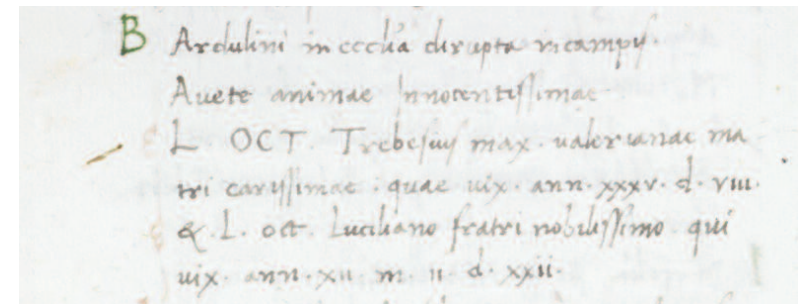 B Ardulini in ecclia dirupta in campis.
Avete animae Innocentissimae
L OCT. Trebesius max. valerianae ma
tri carissimae. quae uix. ann. xxxv. d. viii.
&. L. oct. Luciliano fratri nobilissimo. qui
uix. ann. xii. m. ii. d. xxii.